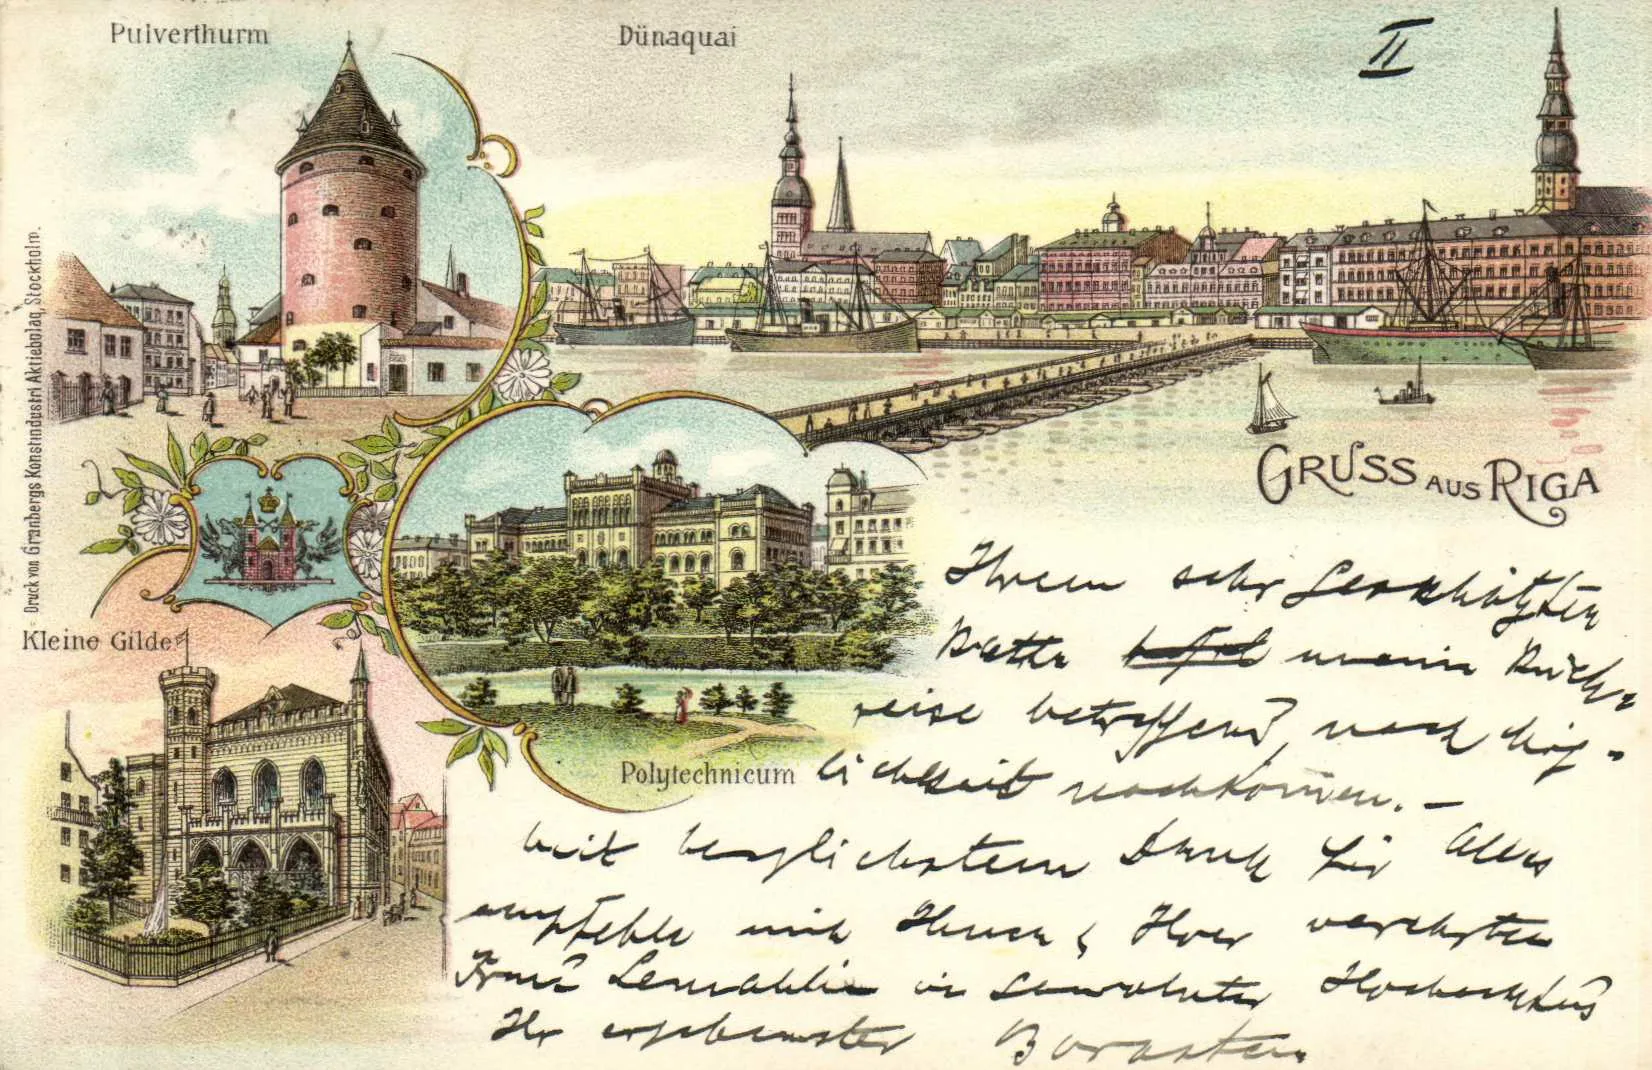 Pulverthurm
Dünaquai
II
Druck von Granbergs Konstindustri Aktiebolag, Stockholm.
GRUSS AUS RIGA
Kleine Gilde
Polytechnicum
Ihrem sehr geschätzten
Rathe meine Rück-
reise betreffend, nach Mög-
lichkeit nachkommen. –
Mit herzlichstem Dank für Alles
empfehle mich Ihnen & Ihrer verehrten
Frau Gemahlin in gewohnter Hochachtung
Ihr ergebenster